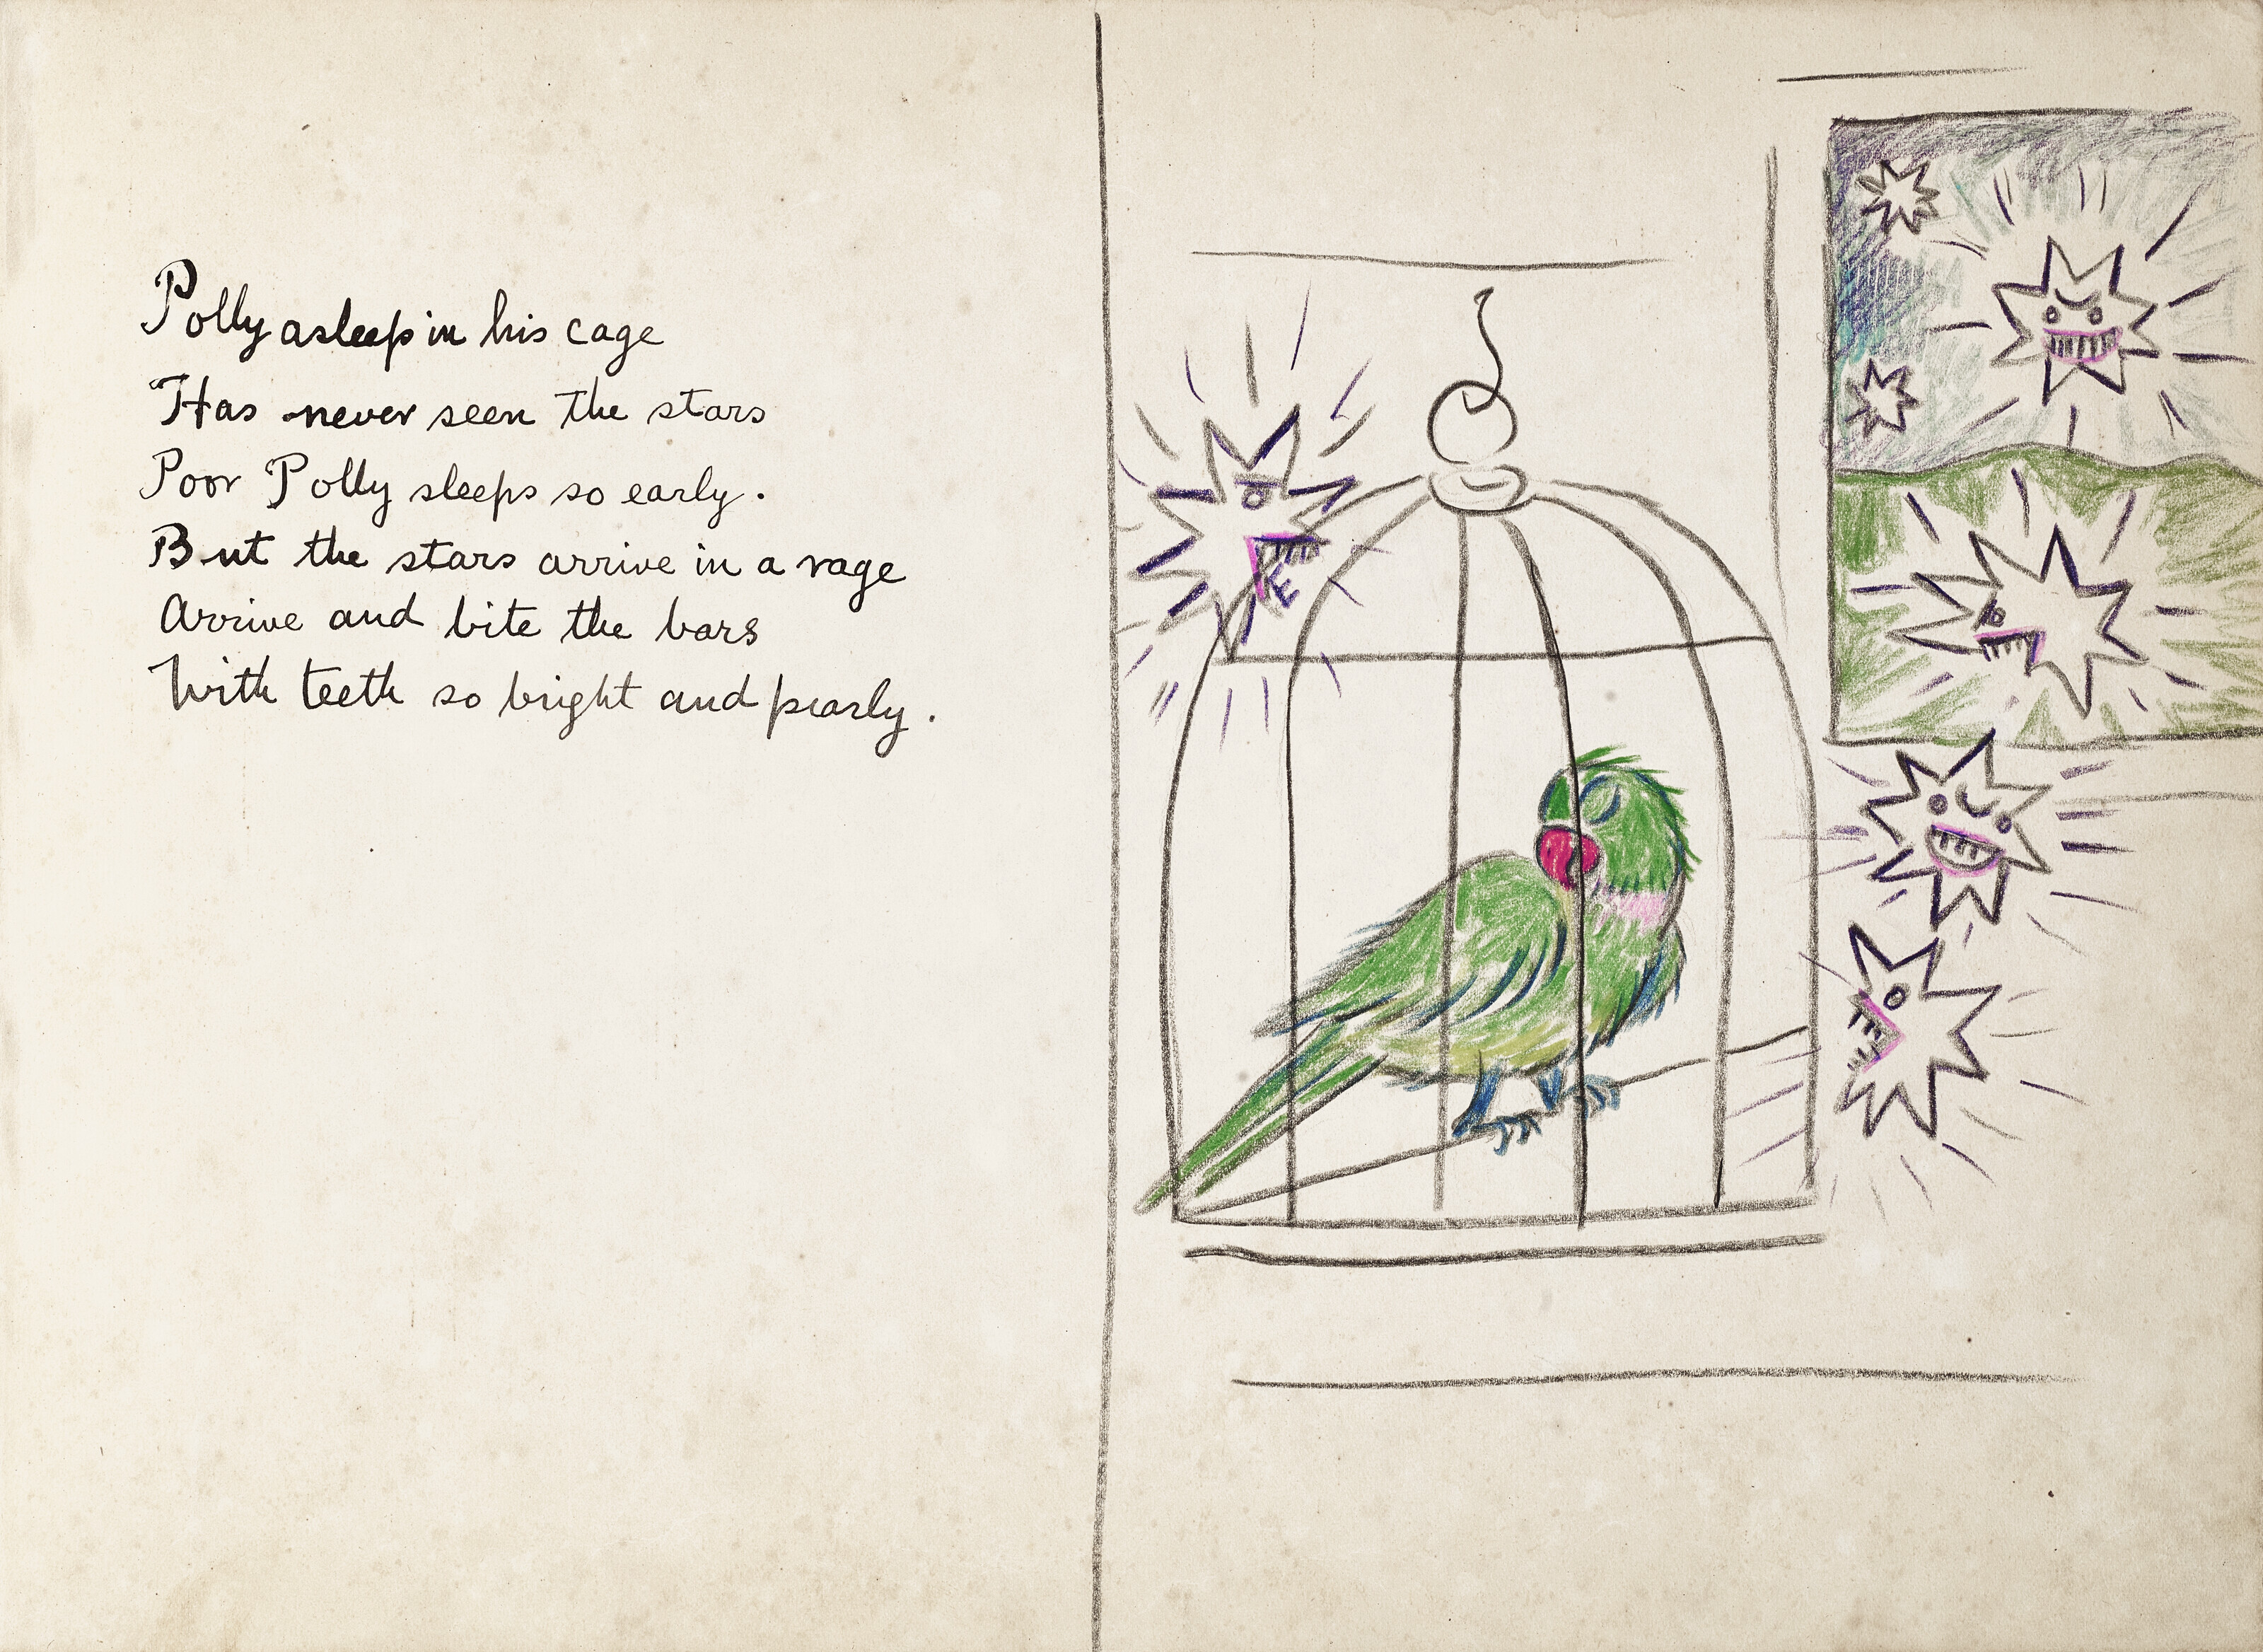 Polly asleep in his cage
Has never seen the stars
Poor Polly sleeps so early.
But the stars arrive in a rage
Arrive and bite the bars
With teeth so bright and pearly.